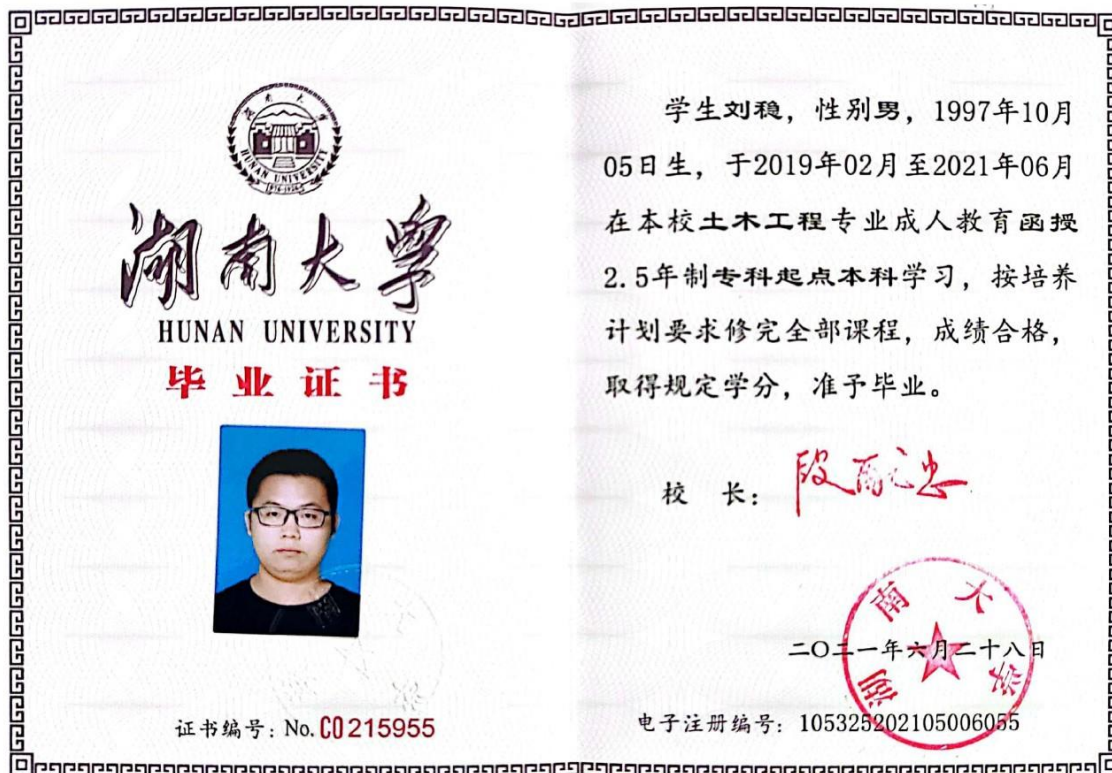 湖南大学
HUNAN UNIVERSITY
1976-1926
湖南大学
HUNAN UNIVERSITY
毕业证书
证书编号：No. C0215955
学生刘稳，性别男，1997年10月
05日生，于2019年02月至2021年06月
在本校土木工程专业成人教育函授
2.5年制专科起点本科学习，按培养
计划要求修完全部课程，成绩合格，
取得规定学分，准予毕业。
校 长：
湖南大学
二〇二一年六月二十八日
电子注册编号：105325202105006055